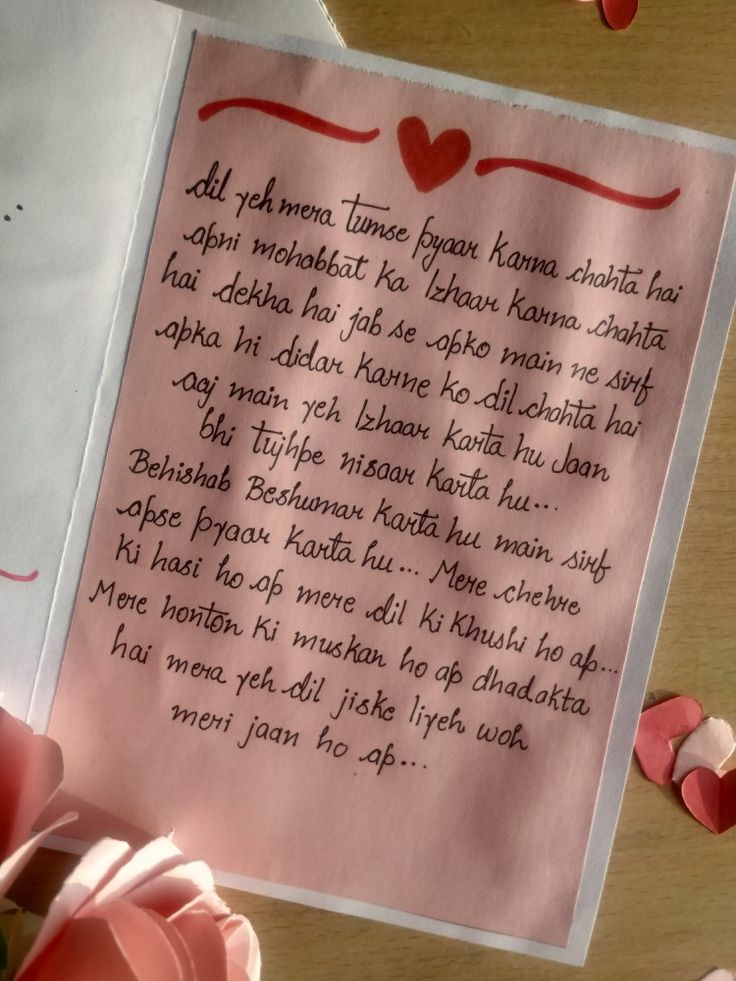 dil yeh mera tumse pyaar karna chahta hai
apni mohabbat ka Izhaar karna chahta
hai dekha hai jab se apko main ne sirf
apka hi didar karne ko dil chahta hai
aaj main yeh Izhaar karta hu Jaan
bhi tujhpe nisaar karta hu...
Behishab Beshumar karta hu main sirf
apse pyaar karta hu... Mere chehre
ki hasi ho ap mere dil ki khushi ho ap...
Mere honton ki muskan ho ap dhadakta
hai mera yeh dil jiske liyeh woh
meri jaan ho ap...